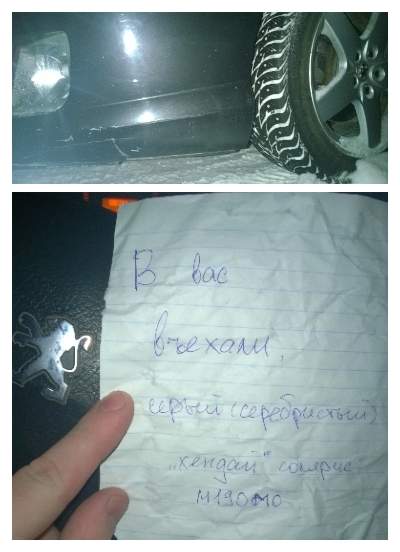 В вас
въехали,
серый (серебристый)
"хендай" солярис
М190МО